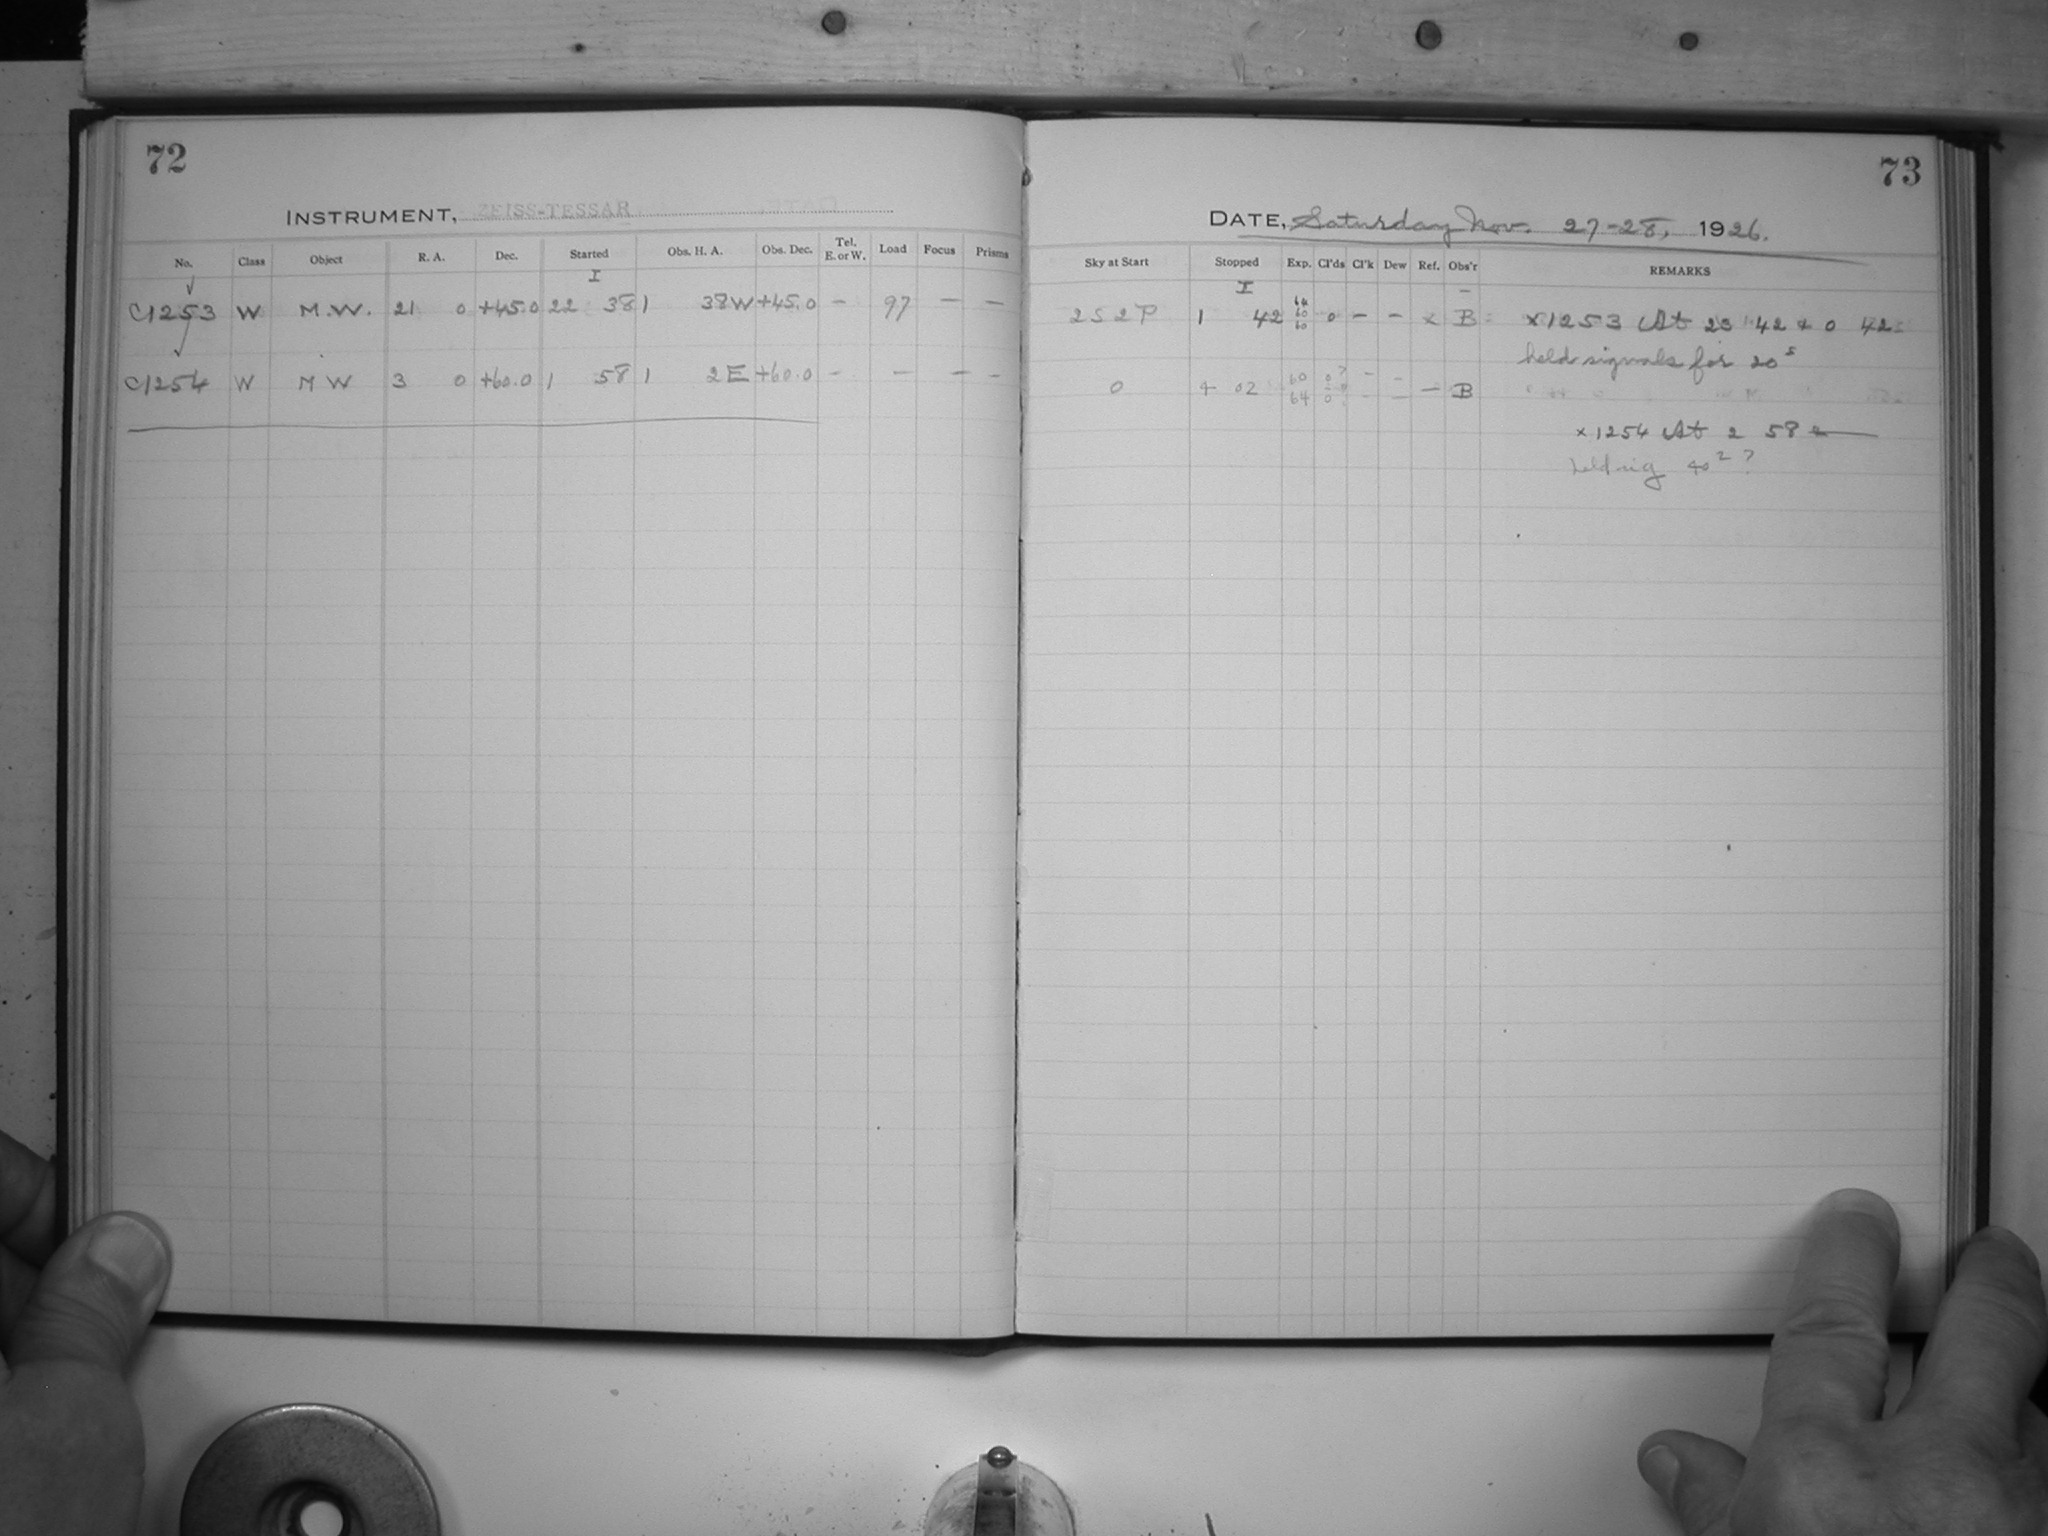 72
INSTRUMENT, ZEISS-TESSAR
No. Class Object R. A. Dec. Started Obs. H. A. Obs. Dec. Tel. E. or W. Load Focus Prisms
I
C1253 W M.W. 21 0 +45.0 22 38 1 38W +45.0 - 97 - -
C1254 W M W 3 0 +60.0 1 58 1 2E +60.0 - - - -
73
DATE, Saturday Nov. 27-28, 1926.
Sky at Start Stopped Exp. Cl'ds Cl'k Dew Ref. Obs'r REMARKS
I
2S2P 1 42 64 60 60 0 - - x B x1253 At 23 42 + 0 42
held signals for 20s
0 4 02 60 64 0? 0 - - - - - B
x1254 At 2 58
held sig 40 ?